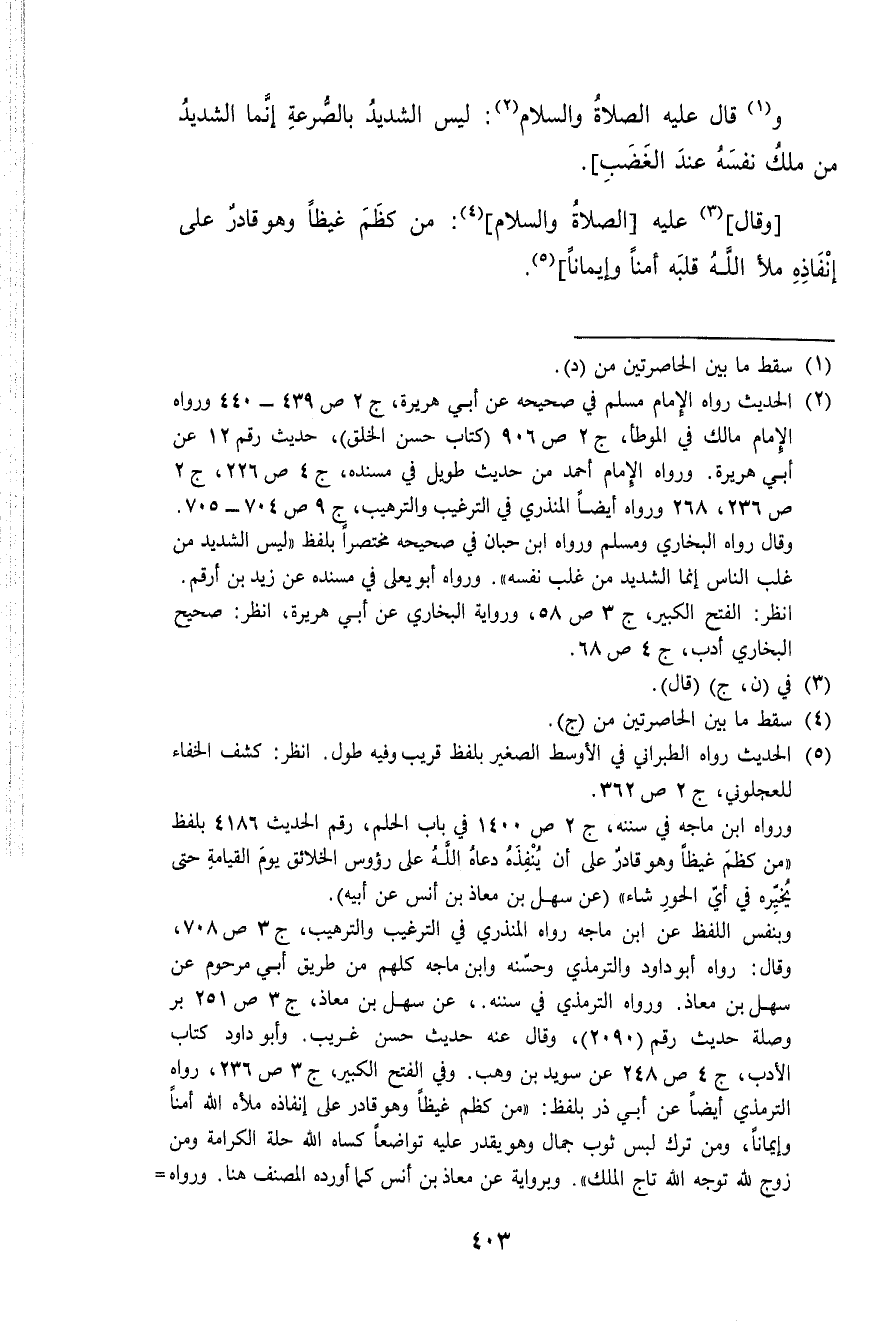 و(١) قال عليه الصلاةُ والسلام(٢): ليس الشديدُ بالصُّرعةِ إنَّما الشديدُ
من ملكُ نفسَهُ عندَ الغَضَبِ].
[وقال](٣) عليه [الصلاةُ والسلام](٤): من كظَمَ غيظاً وهو قادرٌ على
إنْفَاذِهِ ملأ اللَّهُ قلبَه أمناً وإيماناً](٥).
(١) سقط ما بين الحاصرتين من (د).
(٢) الحديث رواه الإمام مسلم في صحيحه عن أبي هريرة، ج ٢ ص ٤٣٩ – ٤٤٠ ورواه
الإمام مالك في الموطأ، ج ٢ ص ٩٠٦ (كتاب حسن الخلق)، حديث رقم ١٢ عن
أبي هريرة. ورواه الإمام أحمد من حديث طويل في مسنده، ج ٤ ص ٢٢٦، ج ٢
ص ٢٣٦، ٢٦٨ ورواه أيضاً المنذري في الترغيب والترهيب، ج ٩ ص ٧٠٤ – ٧٠٥.
وقال رواه البخاري ومسلم ورواه ابن حبان في صحيحه مختصراً بلفظ «ليس الشديد من
غلب الناس إنما الشديد من غلب نفسه». ورواه أبو يعلى في مسنده عن زيد بن أرقم.
انظر: الفتح الكبير، ج ٣ ص ٥٨، ورواية البخاري عن أبي هريرة، انظر: صحيح
البخاري أدب، ج ٤ ص ٦٨.
(٣) في (ن، ج) (قال).
(٤) سقط ما بين الحاصرتين من (ج).
(٥) الحديث رواه الطبراني في الأوسط الصغير بلفظ قريب وفيه طول. انظر: كشف الخفاء
للعجلوني، ج ٢ ص ٣٦٢.
ورواه ابن ماجه في سننه، ج ٢ ص ١٤٠٠ في باب الحلم، رقم الحديث ٤١٨٦ بلفظ
«من كظمَ غيظاً وهو قادرٌ على أن يُنْفِذَهُ دعاهُ اللَّهُ على رؤوس الخلائق يومَ القيامةِ حتى
يُخيِّره في أيّ الحورِ شاء» (عن سهل بن معاذ بن أنس عن أبيه).
وبنفس اللفظ عن ابن ماجه رواه المنذري في الترغيب والترهيب، ج ٣ ص ٧٠٨،
وقال: رواه أبو داود والترمذي وحسّنه وابن ماجه كلهم من طريق أبي مرحوم عن
سهل بن معاذ. ورواه الترمذي في سننه.، عن سهل بن معاذ، ج ٣ ص ٢٥١ بر
وصلة حديث رقم (٢٠٩٠)، وقال عنه حديث حسن غريب. وأبو داود كتاب
الأدب، ج ٤ ص ٢٤٨ عن سويد بن وهب. وفي الفتح الكبير، ج ٣ ص ٢٣٦، رواه
الترمذي أيضاً عن أبي ذر بلفظ: «من كظم غيظاً وهو قادر على إنفاذه ملأه الله أمناً
وإيماناً، ومن ترك لبس ثوب جمال وهو يقدر عليه تواضعاً كساه الله حلة الكرامة ومن
زوج لله توجه الله تاج الملك». وبرواية عن معاذ بن أنس كما أورده المصنف هنا. ورواه=
٤٠٣